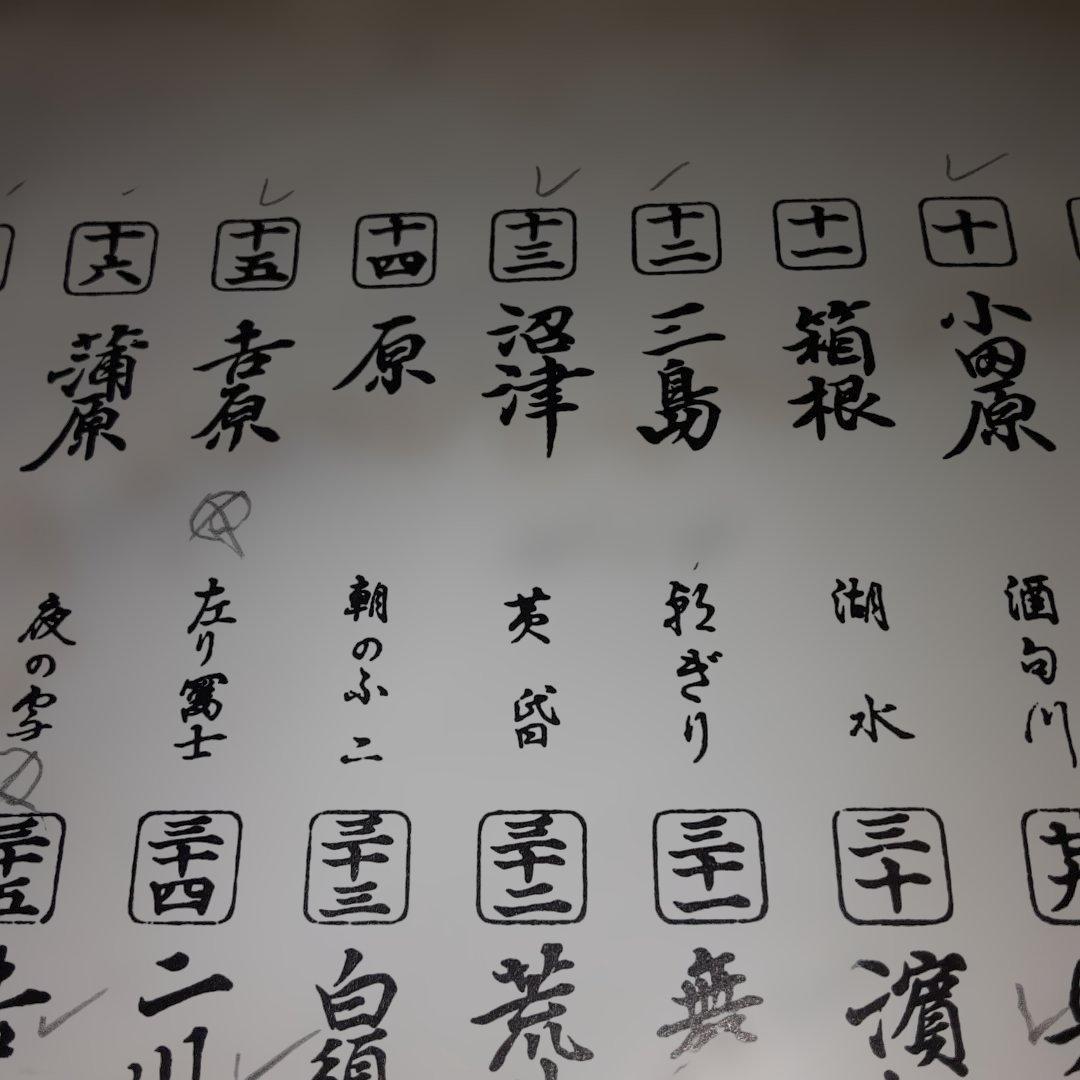 十
小田原
酒匂川
十一
箱根
湖水
十二
三島
朝ぎり
十三
沼津
黄昏
十四
原
朝のふ二
十五
吉原
左り冨士
十六
蒲原
夜の雪
三十
濱
三十一
無
三十二
荒
三十三
白須
三十四
二川
三十五